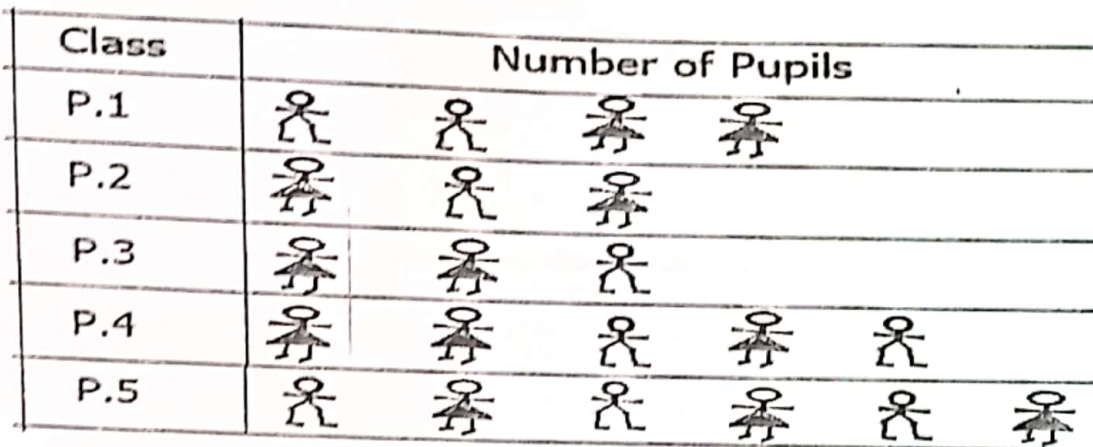 Class Number of Pupils
P.1
P.2
P.3
P.4
P.5